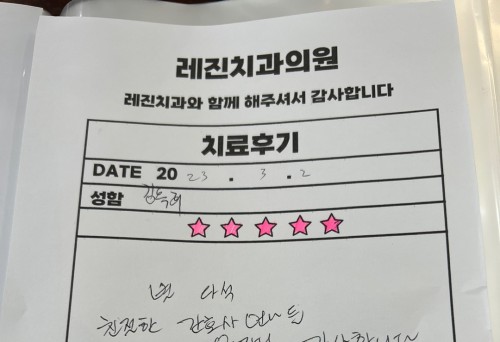 레진치과의원
레진치과와 함께 해주셔서 감사합니다
치료후기
DATE 20 23 . 3 . 2
성함
별 다섯
친절한 간호사 언니들
감사합니다